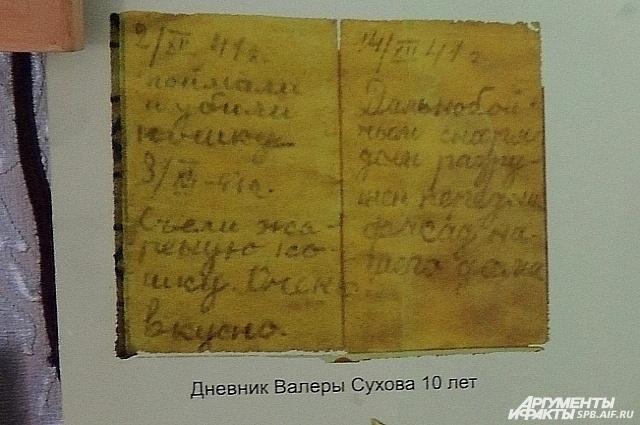 2/XII 41 г.
поймали
и убили
кошку
3/XII-41 г.
Съели жа-
реную ко-
шку. Очень
вкусно.
14/XII 41 г.
Дальнобой-
ным снаря-
дом разру-
шен
фасад на-
шего дома
Дневник Валеры Сухова 10 лет
АРГУМЕНТЫ
И ФАКТЫ SPB.AIF.RU